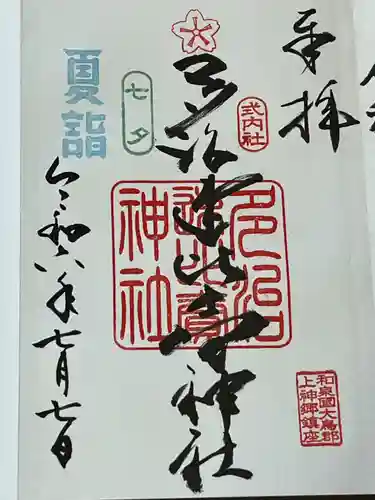 奉拝
式内社
多治速比売神社
多治
速比賣
神社
七夕
夏詣
令和六年七月七日
和泉國大鳥郡
上神郷鎮座